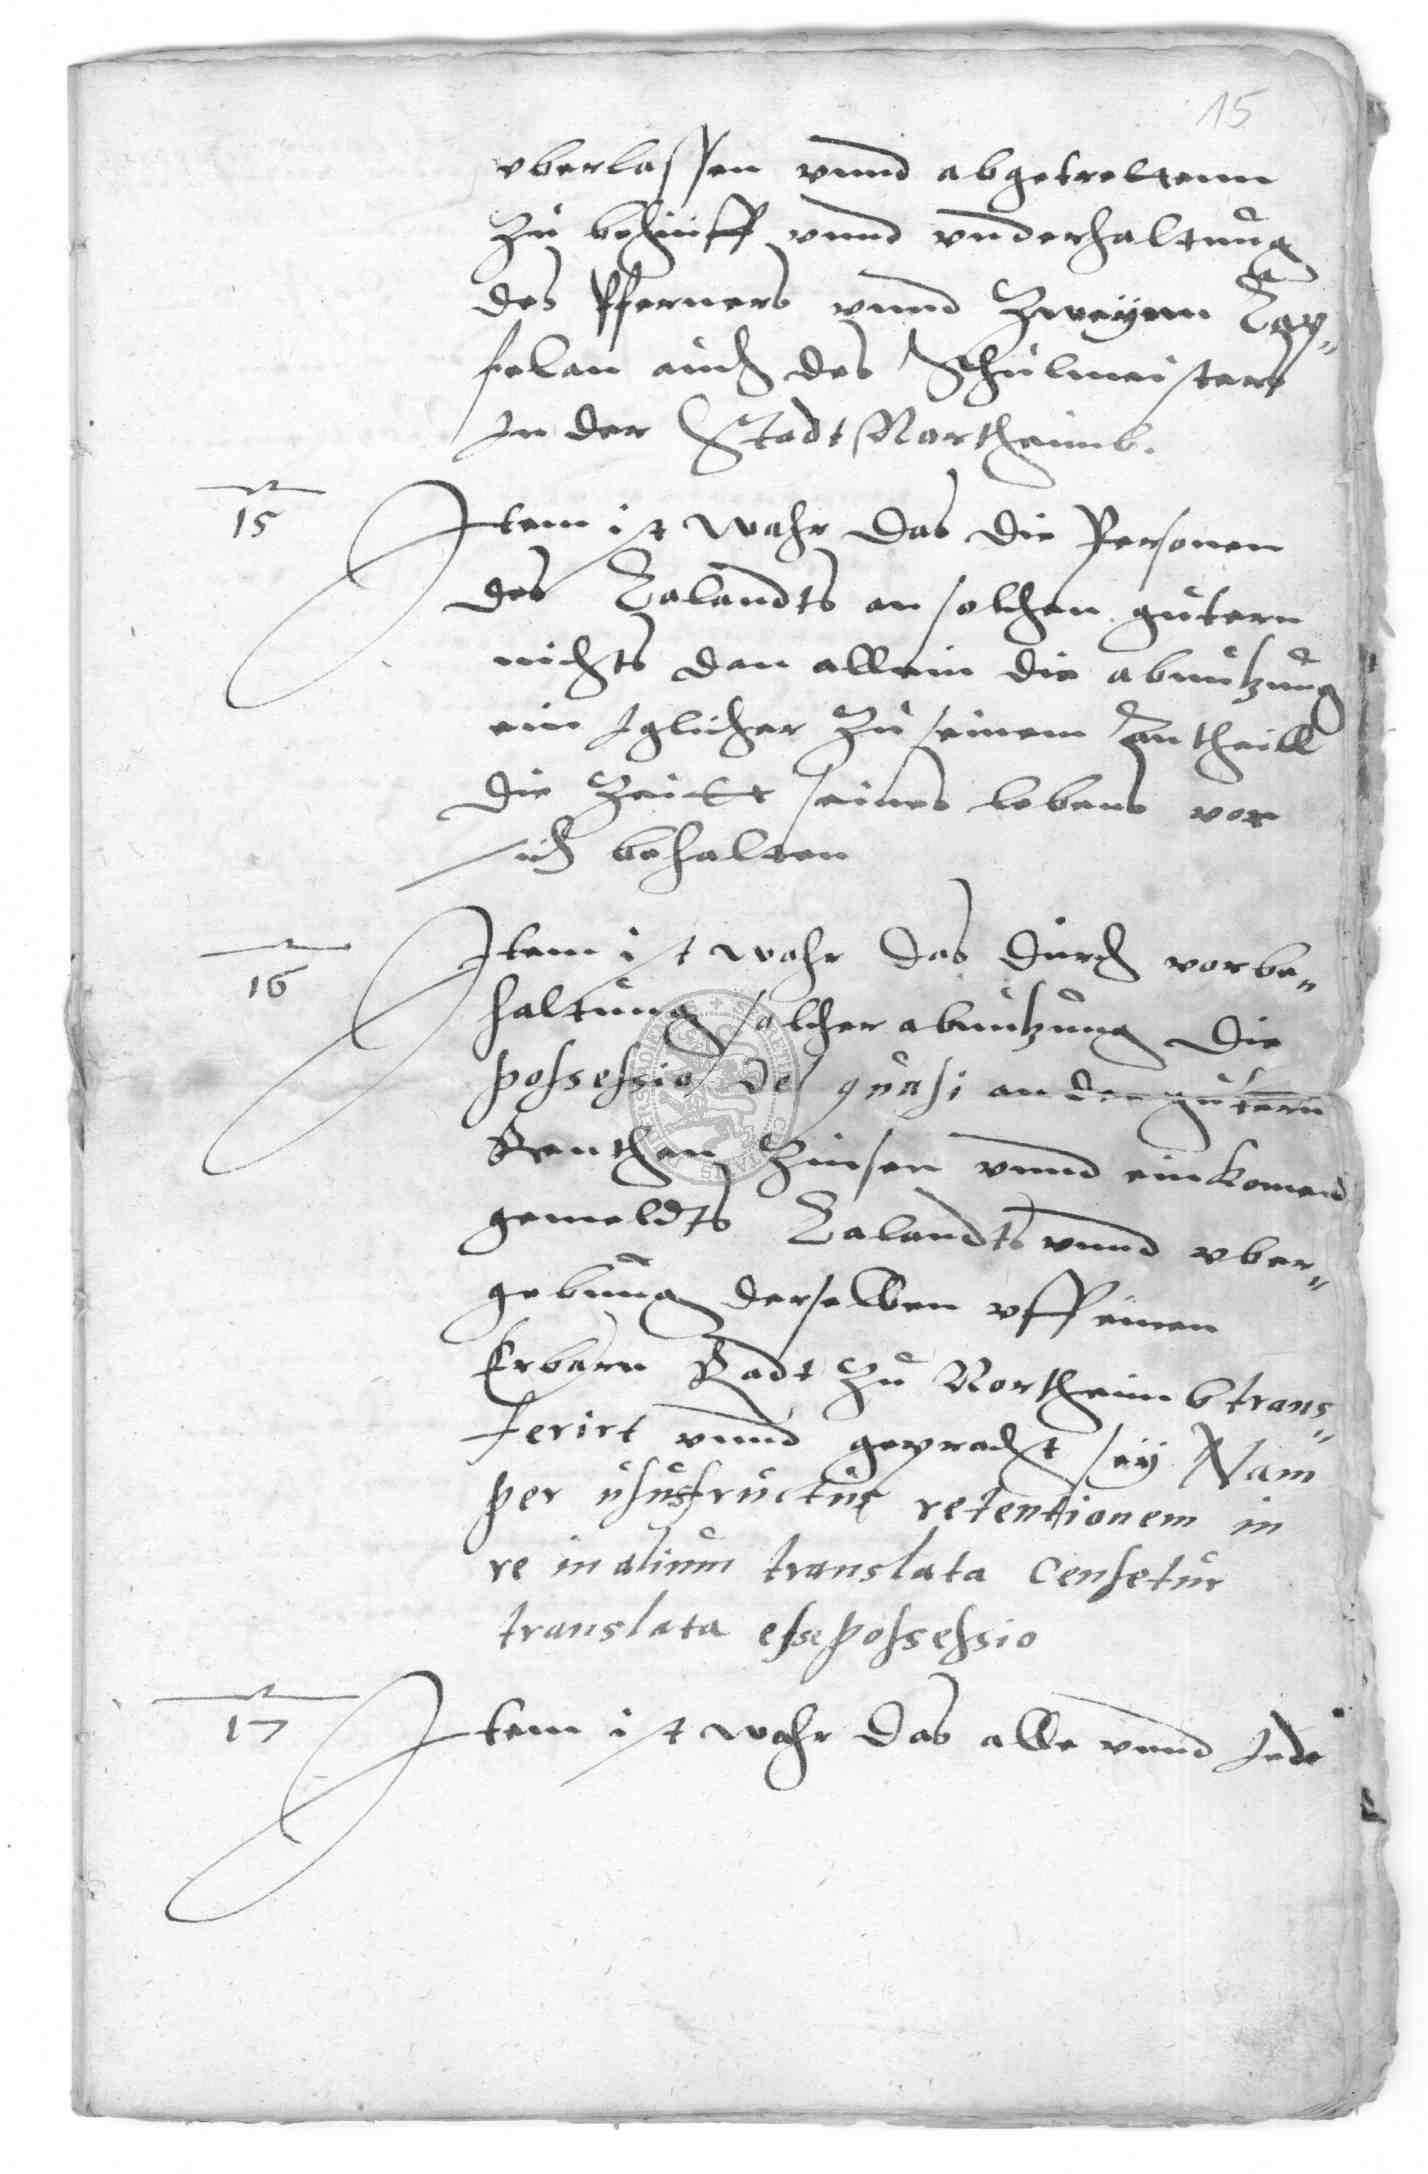 15
vberlassen vnnd abgetrettenn
zu behuiff vnnd vnderhaltung
des Pferners vnnd zweyenn Cap„
pelan auch des Schulmeisters
In der Stadt Northeimb.
15
Item ist wahr das die Personen
des Calandts an solchen gutern
nichts dan allein die abnutzung
ein Iglicher zu seinem antheill
die Zeitt seines lebens vor
sich behalten
16
Item ist wahr das durch vorbe„
haltung solcher abnutzung die
possessio vel quasi an den gutern
Renthen Zinsen vnnd einkomend
gemeldts Calandts vnnd vber„
gebung derselben vff einen
Erbarn Radt zu Northeimb trans„
ferirt vnnd gepracht sey Nam
per ususfructus retentionem in
re in alium translata censetur
translata esse possessio
17
Item ist wahr das alle vnnd Jede